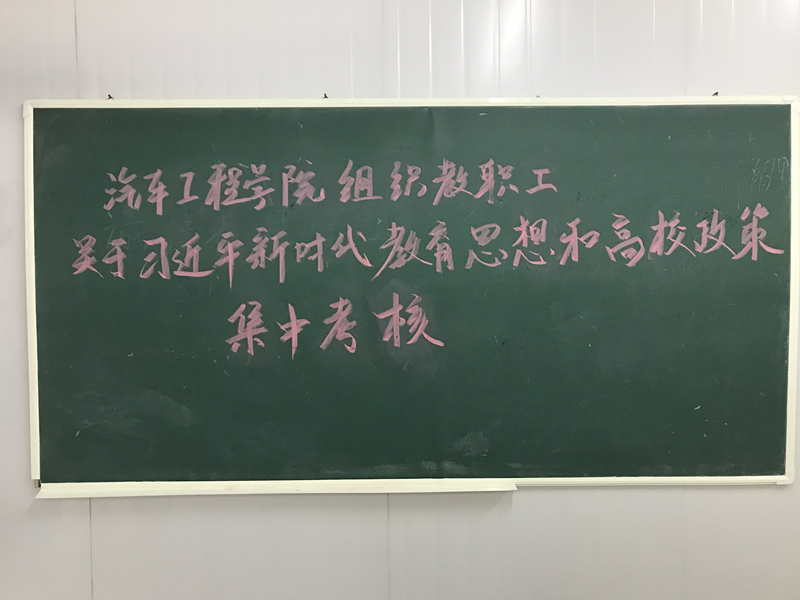 汽车工程学院组织教职工
关于习近平新时代教育思想和高校政策
集中考核